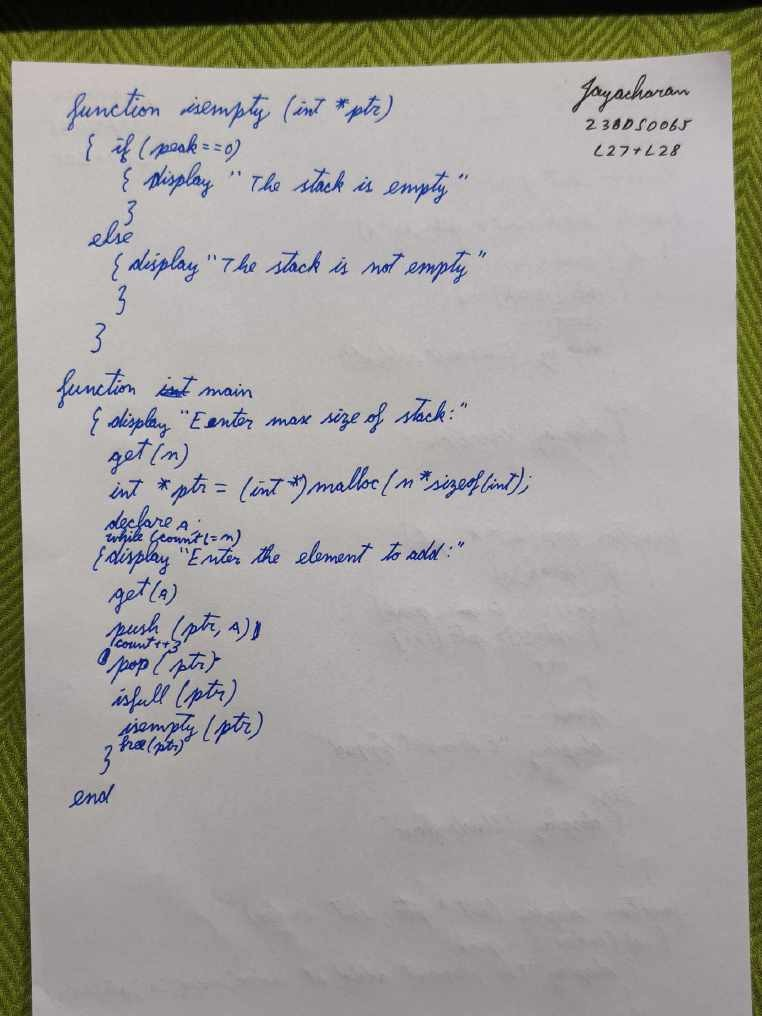 function isempty (int *ptr)
{ if (peak==0)
{ display " The stack is empty"
}
else
{ display "The stack is not empty"
}
}
function int main
{ display "Eenter max size of stack:"
get(n)
int *ptr = (int *) malloc(n*sizeof(int);
declare A;
while (count!=n)
{ display "Enter the element to add:"
get(A)
push (ptr, A)
count++}
pop(ptr)
isfull (ptr)
isempty (ptr)
free(ptr)
}
end
Jayacharan
23BDS0065
L27+L28